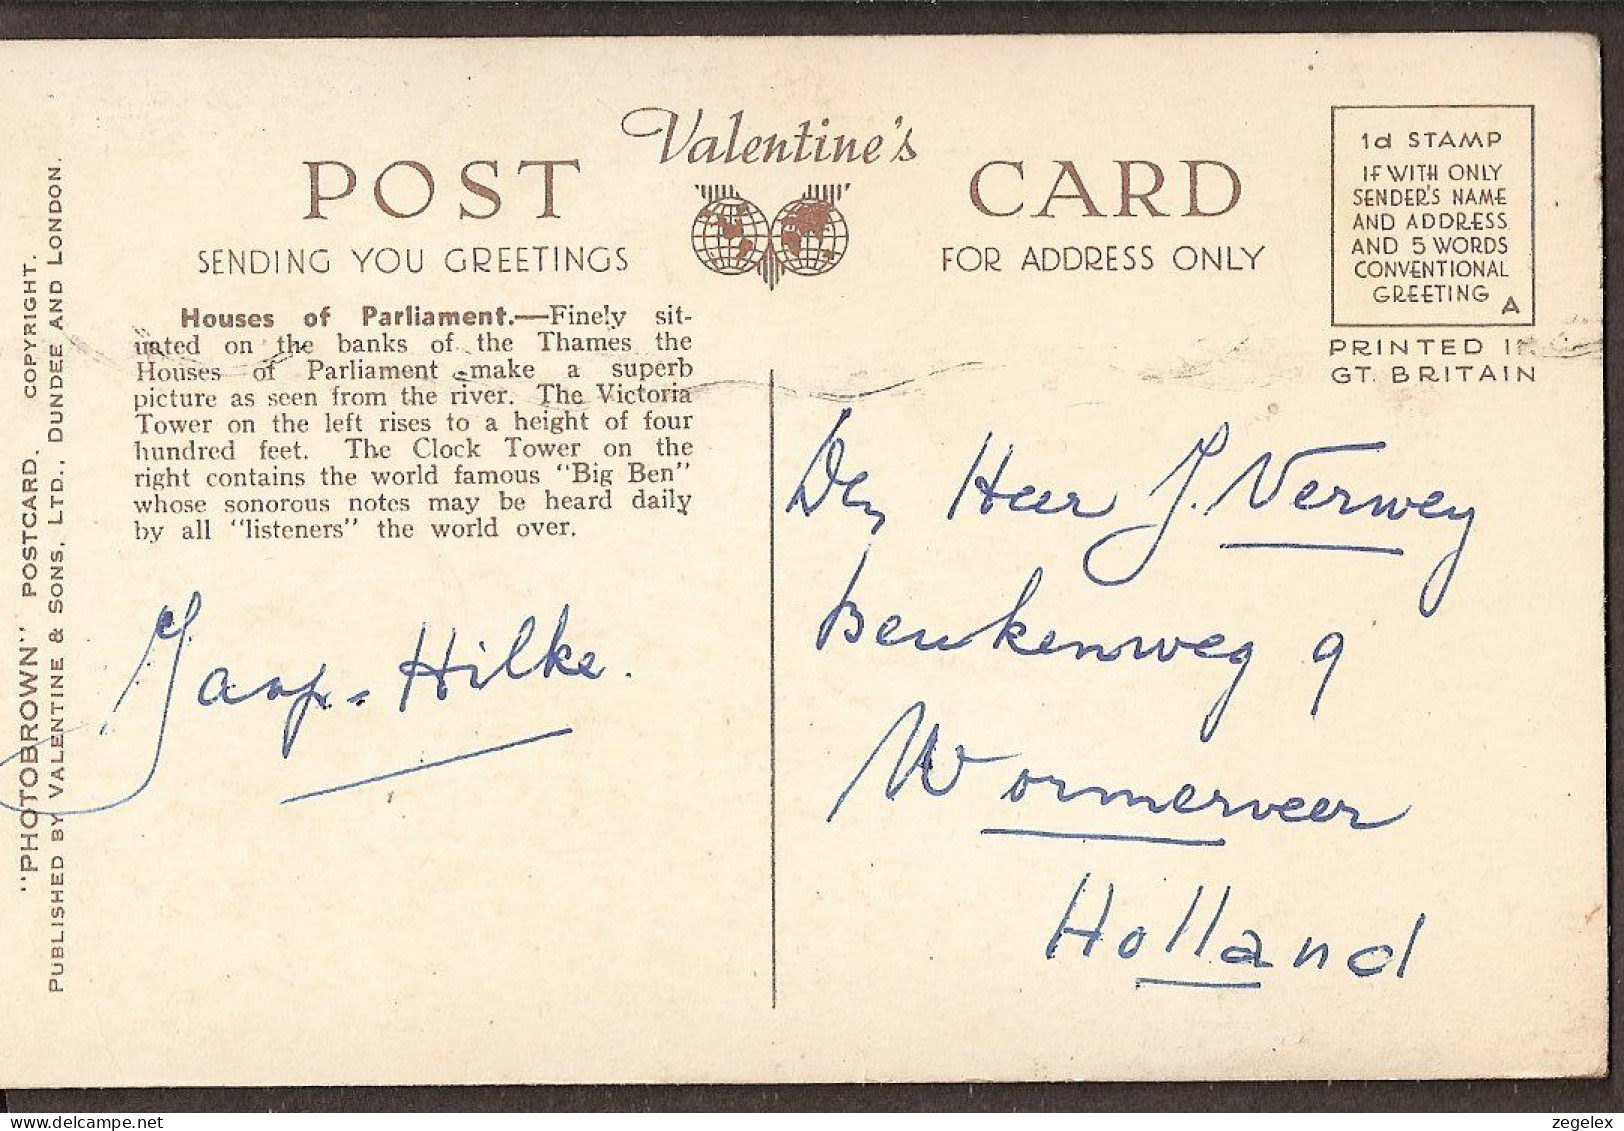 Valentine's
POST CARD
SENDING YOU GREETINGS
FOR ADDRESS ONLY
1d STAMP
IF WITH ONLY
SENDER'S NAME
AND ADDRESS
AND 5 WORDS
CONVENTIONAL
GREETING A
PRINTED IN
GT. BRITAIN
Houses of Parliament.—Finely sit-
uated on the banks of the Thames the
Houses of Parliament make a superb
picture as seen from the river. The Victoria
Tower on the left rises to a height of four
hundred feet. The Clock Tower on the
right contains the world famous "Big Ben"
whose sonorous notes may be heard daily
by all "listeners" the world over.
Jaap - Hilke.
Den Heer J. Verwey
Beukenweg 9
Wormerveer
Holland
"PHOTOBROWN" POSTCARD. COPYRIGHT.
PUBLISHED BY VALENTINE & SONS, LTD., DUNDEE AND LONDON.
Website: www.delcampe.net
zegelex